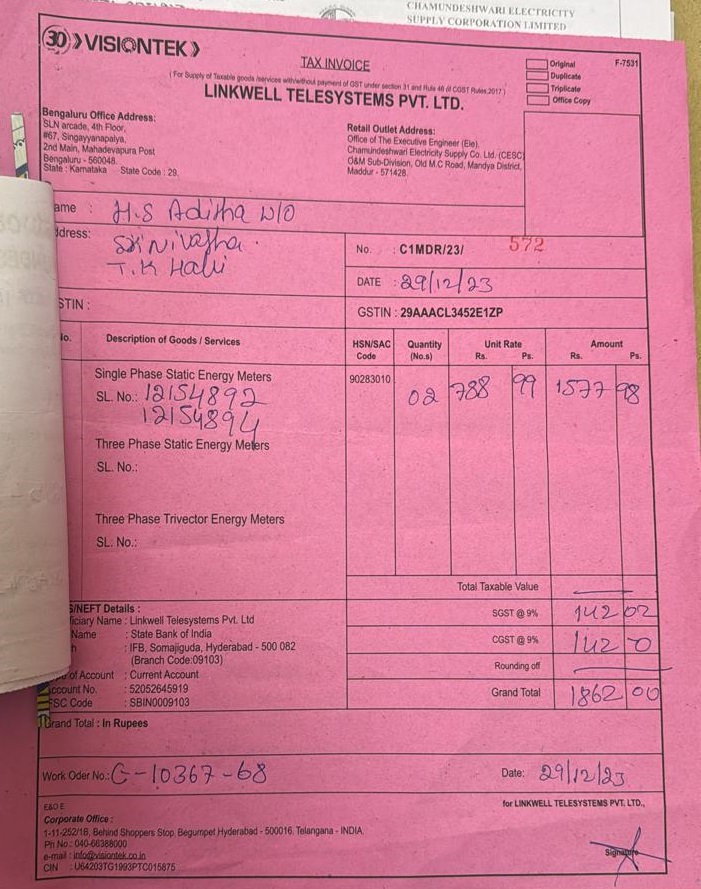 CHAMUNDESHWARI ELECTRICITY
SUPPLY CORPORATION LIMITED
30 VISIONTEK
TAX INVOICE
(For Supply of Taxable goods /services with/without payment of GST under section 31 and Rule 46 of CGST Rules,2017)
LINKWELL TELESYSTEMS PVT. LTD.
Original
Duplicate
Triplicate
Office Copy
F-7531
Bengaluru Office Address:
SLN arcade, 4th Floor,
#67, Singayyanapalya,
2nd Main, Mahadevapura Post
Bengaluru - 560048.
State : Karnataka State Code : 29.
Retail Outlet Address:
Office of The Executive Engineer (Ele).
Chamundeshwari Electricity Supply Co. Ltd. (CESC)
O&M Sub-Division, Old M.C Road, Mandya District,
Maddur - 571428.
ame : H.S
ddress:
T.K Halli
No. : C1MDR/23/ 572
DATE : 29/12/23
STIN :
GSTIN : 29AAACL3452E1ZP
lo. Description of Goods / Services HSN/SAC Code Quantity (No.s) Unit Rate Rs. Ps. Amount Rs. Ps.
Single Phase Static Energy Meters 90283010 02 788 99 1577 98
SL. No.: 12154892
12154894
Three Phase Static Energy Meters
SL. No.:
Three Phase Trivector Energy Meters
SL. No.:
Total Taxable Value
S/NEFT Details :
iciary Name : Linkwell Telesystems Pvt. Ltd
Name : State Bank of India
h : IFB, Somajiguda, Hyderabad - 500 082
(Branch Code:09103)
of Account : Current Account
ccount No. : 52052645919
SC Code : SBIN0009103
SGST @ 9% 142 02
CGST @ 9% 142 0
Rounding off
Grand Total 1862 00
Grand Total : In Rupees
Work Oder No.: G-10367-68
Date: 29/12/23
E&O E
for LINKWELL TELESYSTEMS PVT. LTD.,
Corporate Office :
1-11-252/1B, Behind Shoppers Stop, Begumpet Hyderabad - 500016, Telangana - INDIA.
Ph No.: 040-66388000
e-mail : info@visiontek.co.in
CIN : U64203TG1993PTC015875
Signature